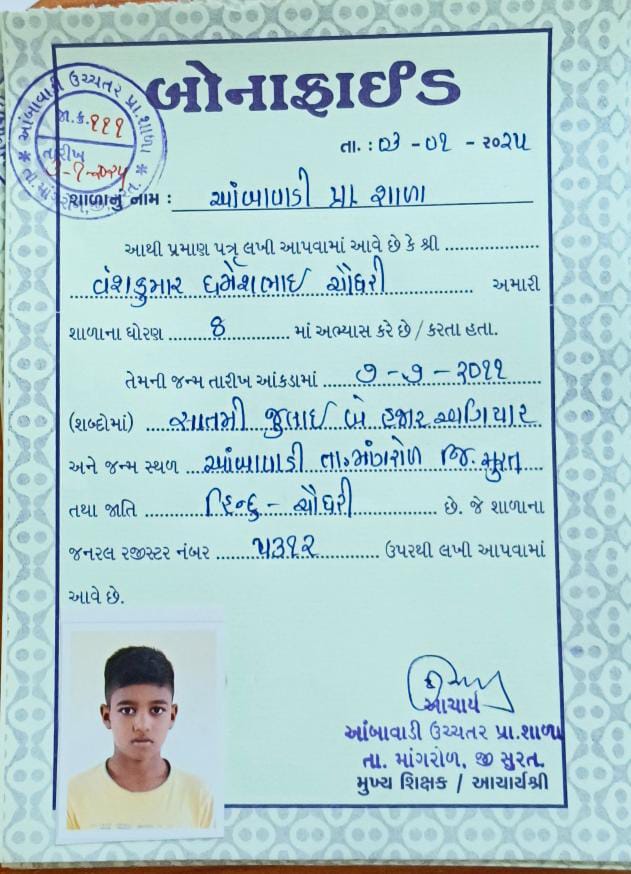 બોનાફાઈડ
આંબાવાડી ઉચ્ચતર પ્રા.શાળા
જા.ક્ર. ૧૧૧
તારીખ
તા. માંગરોળ, જી. સુરત.
તા. : ૦૩ - ૦૧ - ૨૦૨૫
શાળાનું નામ : આંબાવાડી પ્રા શાળા
આથી પ્રમાણ પત્ર લખી આપવામાં આવે છે કે શ્રી
વંશકુમાર ધર્મેશભાઈ ચૌધરી અમારી
શાળાના ધોરણ 8 માં અભ્યાસ કરે છે / કરતા હતા.
તેમની જન્મ તારીખ આંકડામાં ૭ - ૭ - ૨૦૧૧
(શબ્દોમાં) સાતમી જુલાઈ બે હજાર અગિયાર
અને જન્મ સ્થળ આંબાવાડી તા. માંગરોળ જિ. સુરત
તથા જાતિ હિન્દુ - ચૌધરી છે. જે શાળાના
જનરલ રજીસ્ટર નંબર ૫૩૧૨ ઉપરથી લખી આપવામાં
આવે છે.
આચાર્ય
આંબાવાડી ઉચ્ચતર પ્રા.શાળા
તા. માંગરોળ, જી સુરત.
મુખ્ય શિક્ષક / આચાર્યશ્રી